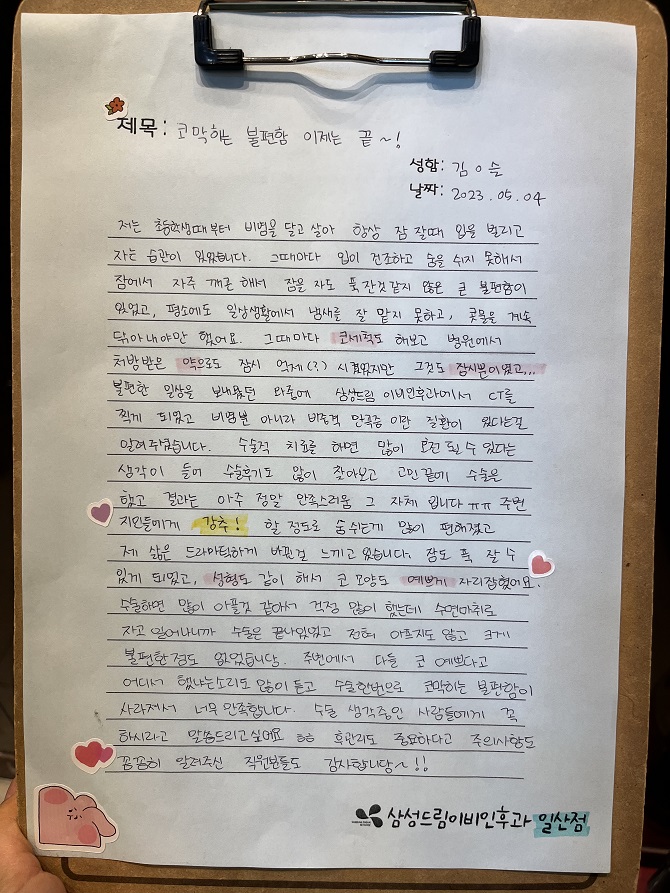 제목: 코막히는 불편함 이제는 끝~!
성함: 김이슬
날짜: 2023.05.04
저는 초등학생때부터 비염을 달고살아 항상 잠잘때 입을 벌리고
자는 습관이 있었습니다. 그때마다 입이 건조하고 숨을 쉬지 못해서
잠에서 자주 깨곤 해서 잠을 자도 푹잔것같지 않은 큰 불편함이
있었고, 평소에도 일상생활에서 냄새를 잘 맡지 못하고, 콧물을 계속
닦아내야만 했어요. 그때마다 코세척도 해보고 병원에서
처방받은 약으로도 잠시 억제(?) 시켰었지만 그것도 잠시뿐이었고...
불편한 일상을 보내왔던 와중에 삼성드림 이비인후과에서 CT를
찍게 되었고 비염뿐 아니라 비중격 만곡증 이란 질환이 있다는걸
알려주셨습니다. 수술적 치료를 하면 많이 호전 될 수 있다는
생각이 들어 수술후기도 많이 찾아보고 고민끝에 수술은
했고 결과는 아주 정말 만족스러움 그 자체 입니다 ㅠㅠ 주변
지인들에게 강추! 할 정도로 숨쉬는게 많이 편해졌고
제 삶은 드라마틱하게 바뀐걸 느끼고 있습니다. 잠도 푹 잘 수
있게 되었고, 성형도 같이 해서 코 모양도 예쁘게 자리잡혔어요.
수술하면 많이 아플것 같아서 걱정 많이 했는데 수면마취로
자고 일어나니까 수술은 끝나있었고 전혀 아프지도 않고 크게
불편한점도 없었습니당. 주변에서 다들 코 예쁘다고
어디서 했냐는소리도 많이 듣고 수술한번으로 코막히는 불편함이
사라져서 너무 만족합니다. 수술 생각중인 사람들에게 꼭
하시라고 말씀드리고싶어요 ㅎㅎ 후관리도 중요하다고 주의사항도
꼼꼼히 알려주신 직원분들도 감사합니당~!!
삼성드림이비인후과 일산점